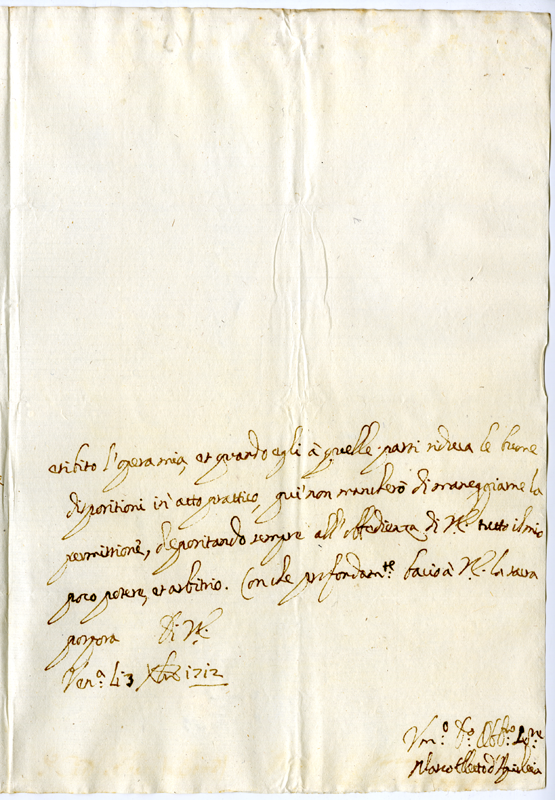 esibito l'opera mia, et quando egli à quelle parti riduca le buone
dispositioni in atto prattico, quì non mancherò di maneggiarne la
permissione, depositando sempre all'obbedienza di V.E. tutto il mio
poco potere, et arbitrio. Con che profondam.te bacio à V.E. la sacra
porpora Di V.E.
Ven.a li 3 Xbre 1712
Um.o D.o Obb.o
Marco Eletto d'Aquileia